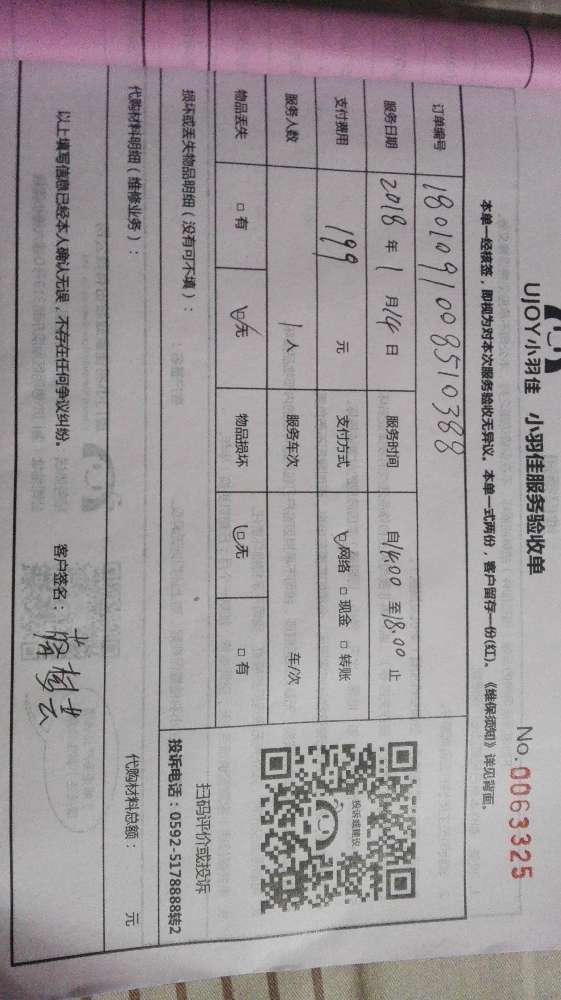 UJOY小羽佳 小羽佳服务验收单
No.0063325
本单一经核签，即视为对本次服务验收无异议。本单一式两份，客户留存一份(红)。《维保须知》详见背面。
订单编号 180109100951038​8
服务日期 2018 年 1 月 14 日 服务时间 自14:00 至18:00 止
支付费用 199 元 支付方式 ☑网络 □ 现金 □ 转账
服务人数 1 人 服务车次 车/次
物品丢失 □ 有 ☑无 物品损坏 ☑无 □ 有
投诉或建议
扫码评价或投诉
投诉电话：0592-5178888转2
损坏或丢失物品明细（没有可不填）：
代购材料明细（维修业务）： 代购材料总额： 元
以上填写信息已经本人确认无误，不存在任何争议纠纷。 客户签名：